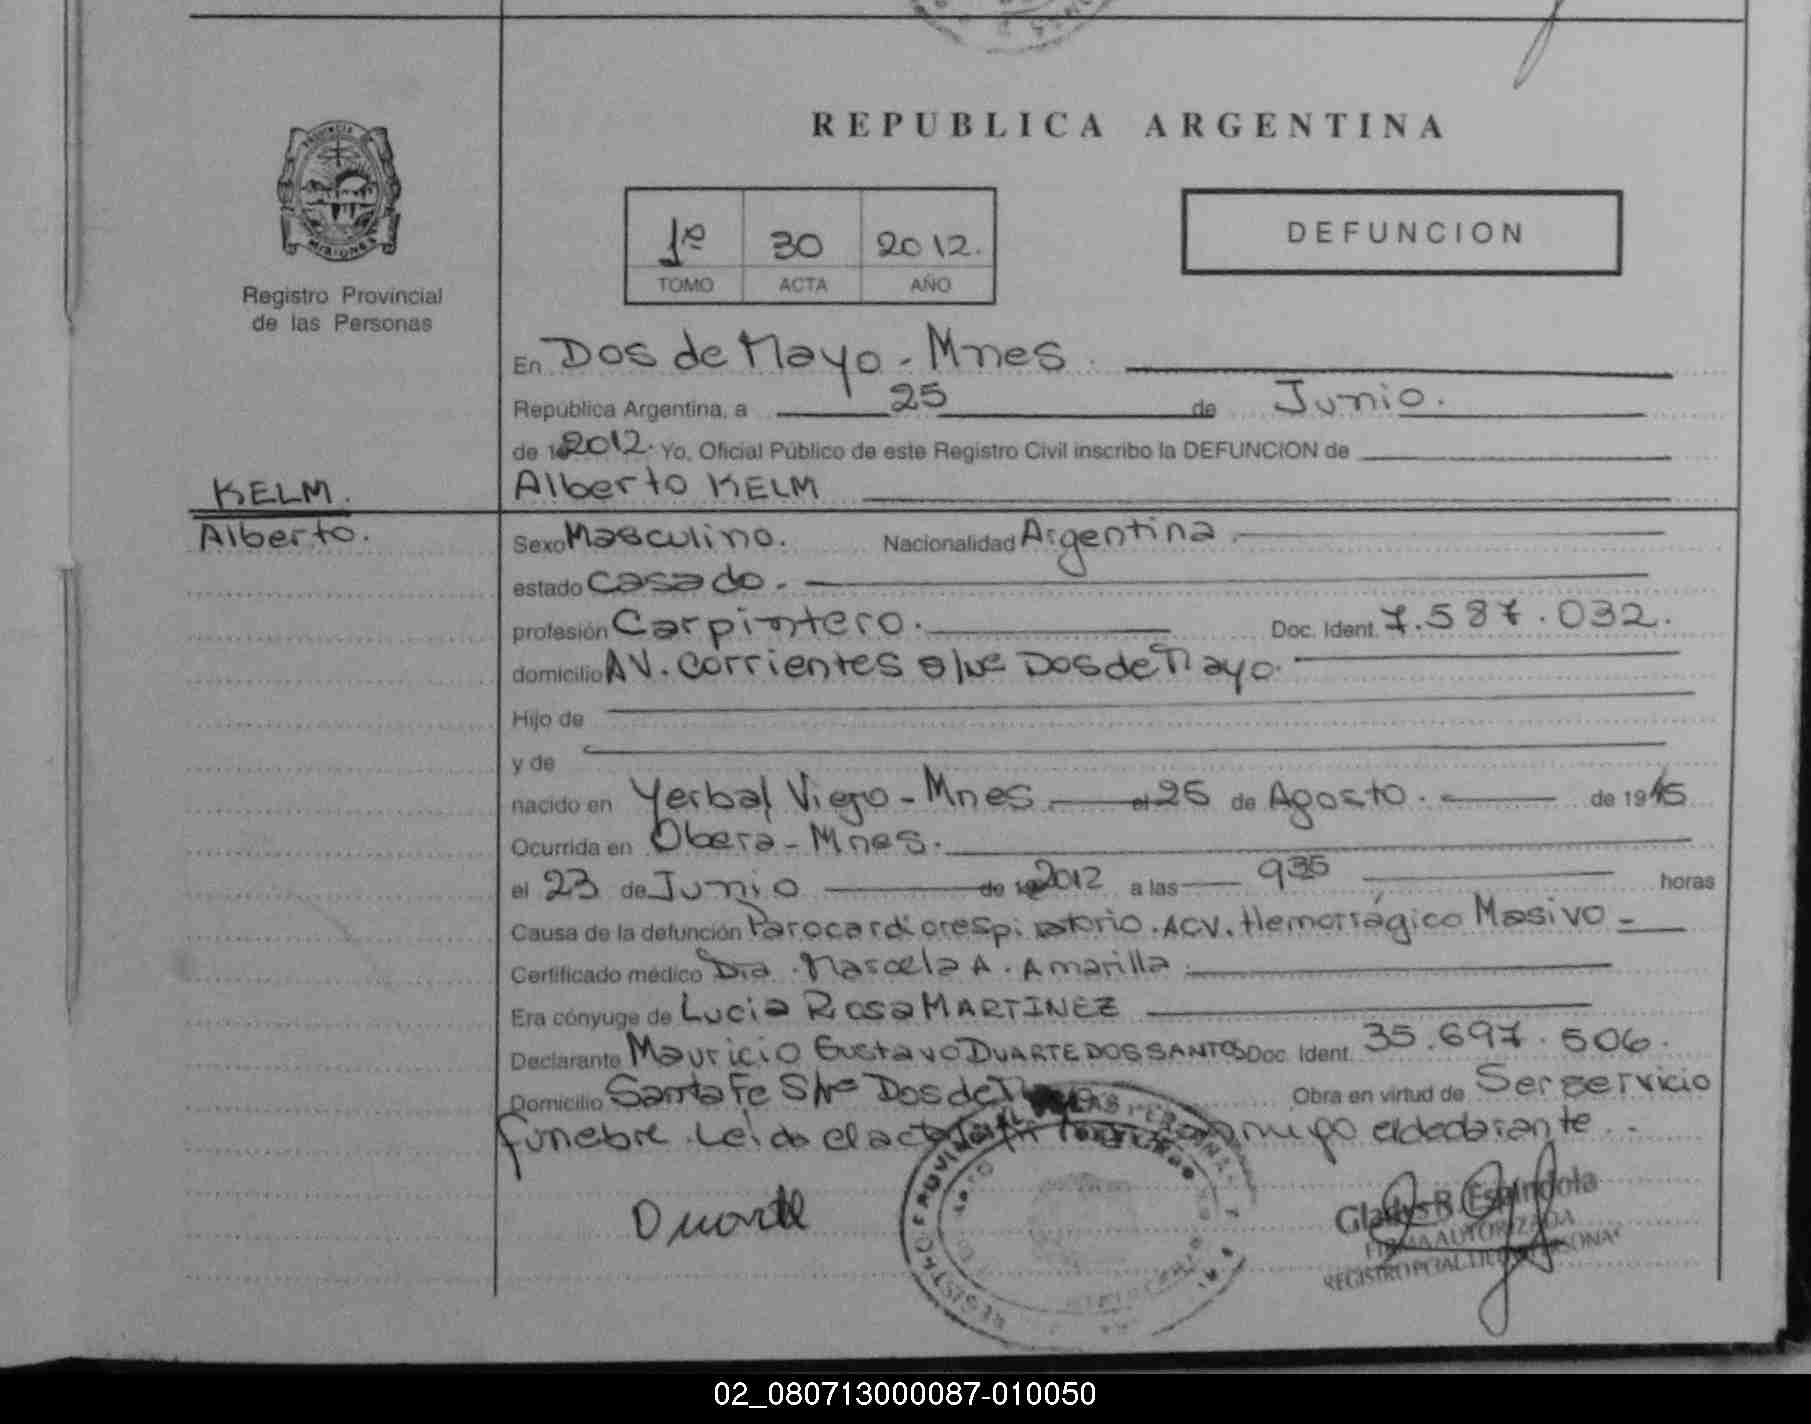 REPUBLICA ARGENTINA
PROVINCIA
MISIONES
Registro Provincial
de las Personas
1º 30 2012.
TOMO ACTA AÑO
DEFUNCION
En Dos de Mayo - Mnes.
República Argentina, a 25 de Junio.
de 2012. Yo, Oficial Público de este Registro Civil inscribo la DEFUNCION de
KELM.
Alberto.
Alberto KELM
Sexo Masculino. Nacionalidad Argentina
estado Casado.
profesión Carpintero. Doc. Ident. 7.587.032.
domicilio AV. Corrientes s/nº Dos de Mayo.
Hijo de
y de
nacido en Yerbal Viejo - Mnes. el 25 de Agosto. de 1945
Ocurrida en Obera - Mnes.
el 23 de Junio de 2012 a las 935 horas
Causa de la defunción Parocardiorespiratorio. ACV. Hemorrágico Masivo -
Certificado médico Dra. Marcela A. Amarilla.
Era cónyuge de Lucia Rosa MARTINEZ
Declarante Mauricio Gustavo DUARTE DOS SANTOS Doc. Ident. 35.697.506.
Domicilio Santa Fe S/Nº Dos de Obra en virtud de Ser servicio
funebre. Leída el acta conmigo el declarante.
Duarte
Gladys B. Espindola
FIRMA AUTORIZADA
02_080713000087-010050